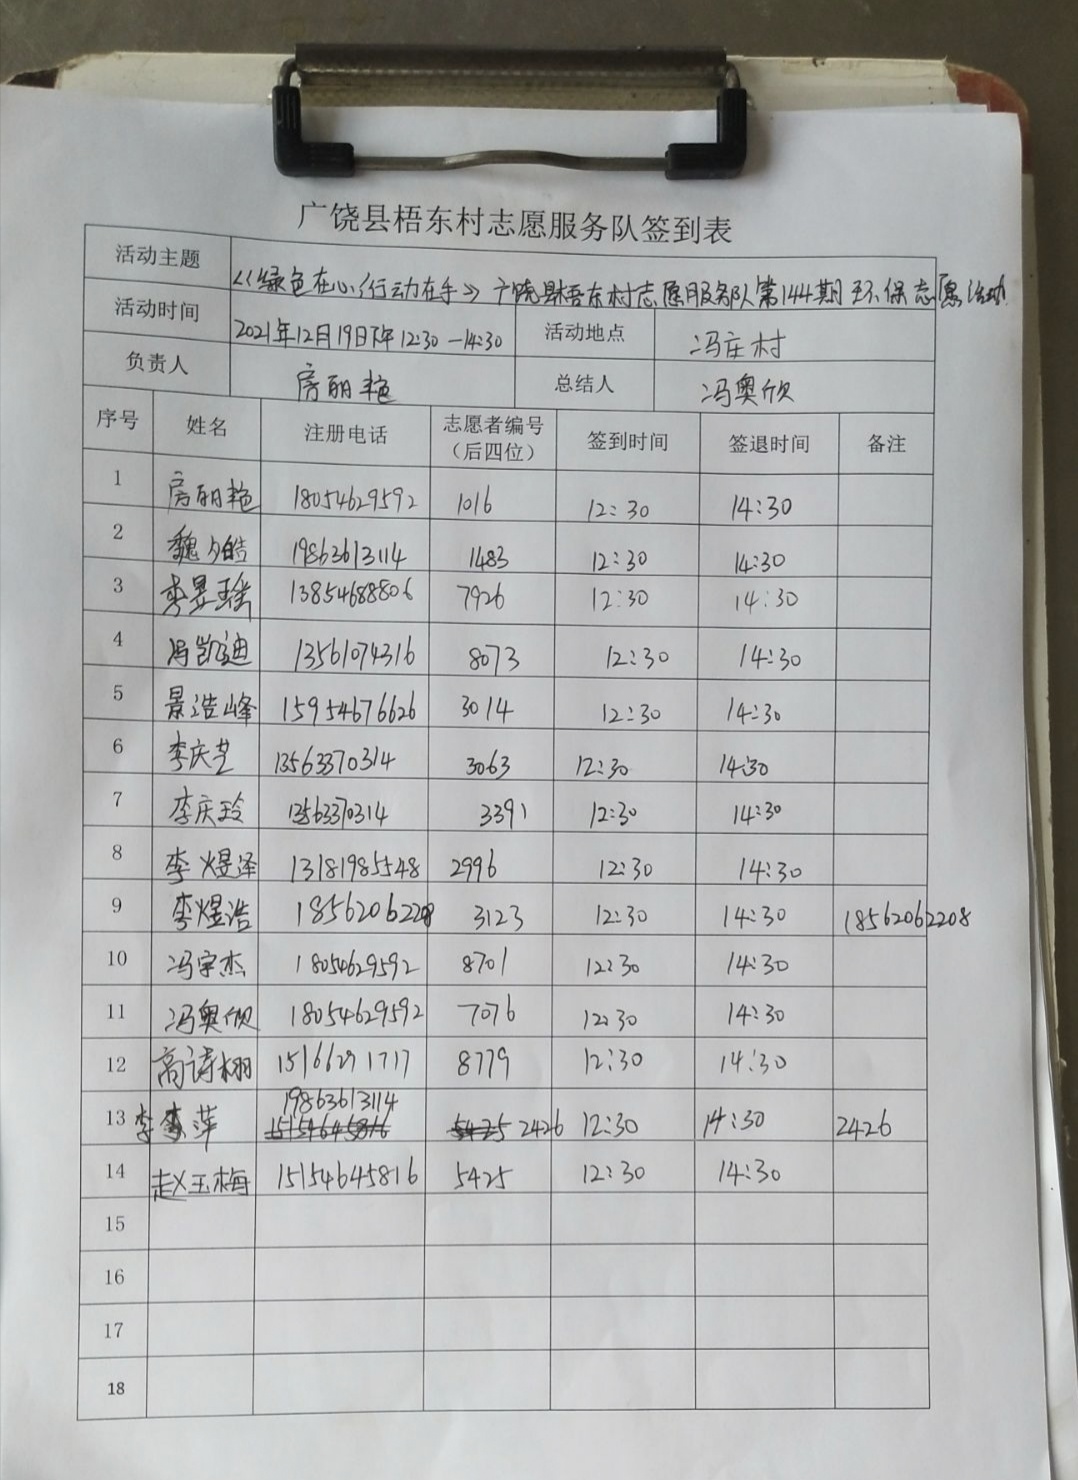 广饶县梧东村志愿服务队签到表
活动主题 <<绿色在心行动在手>>广饶县梧东村志愿服务队第144期环保志愿活动
活动时间 2021年12月19日下午12:30—14:30 活动地点 冯庄村
负责人 房丽艳 总结人 冯奥欣
序号 姓名 注册电话 志愿者编号（后四位） 签到时间 签退时间 备注
1 房丽艳 18054629592 1016 12:30 14:30
2 魏夕皓 19863613114 1483 12:30 14:30
3 李昱瑶 13854688806 7926 12:30 14:30
4 冯凯迪 13561074316 8073 12:30 14:30
5 景浩峰 15954676626 3014 12:30 14:30
6 李庆芝 13563370314 3063 12:30 14:30
7 李庆玲 13563370314 3391 12:30 14:30
8 李煜泽 13181985548 2996 12:30 14:30
9 李煜浩 18562062208 3123 12:30 14:30 18562062208
10 冯宇杰 18054629592 8701 12:30 14:30
11 冯奥欣 18054629592 7076 12:30 14:30
12 高诗栩 15166291717 8779 12:30 14:30
13 李萍 19863613114 15154645816 5425 2426 12:30 14:30 2426
14 赵玉梅 15154645816 5425 12:30 14:30
15
16
17
18